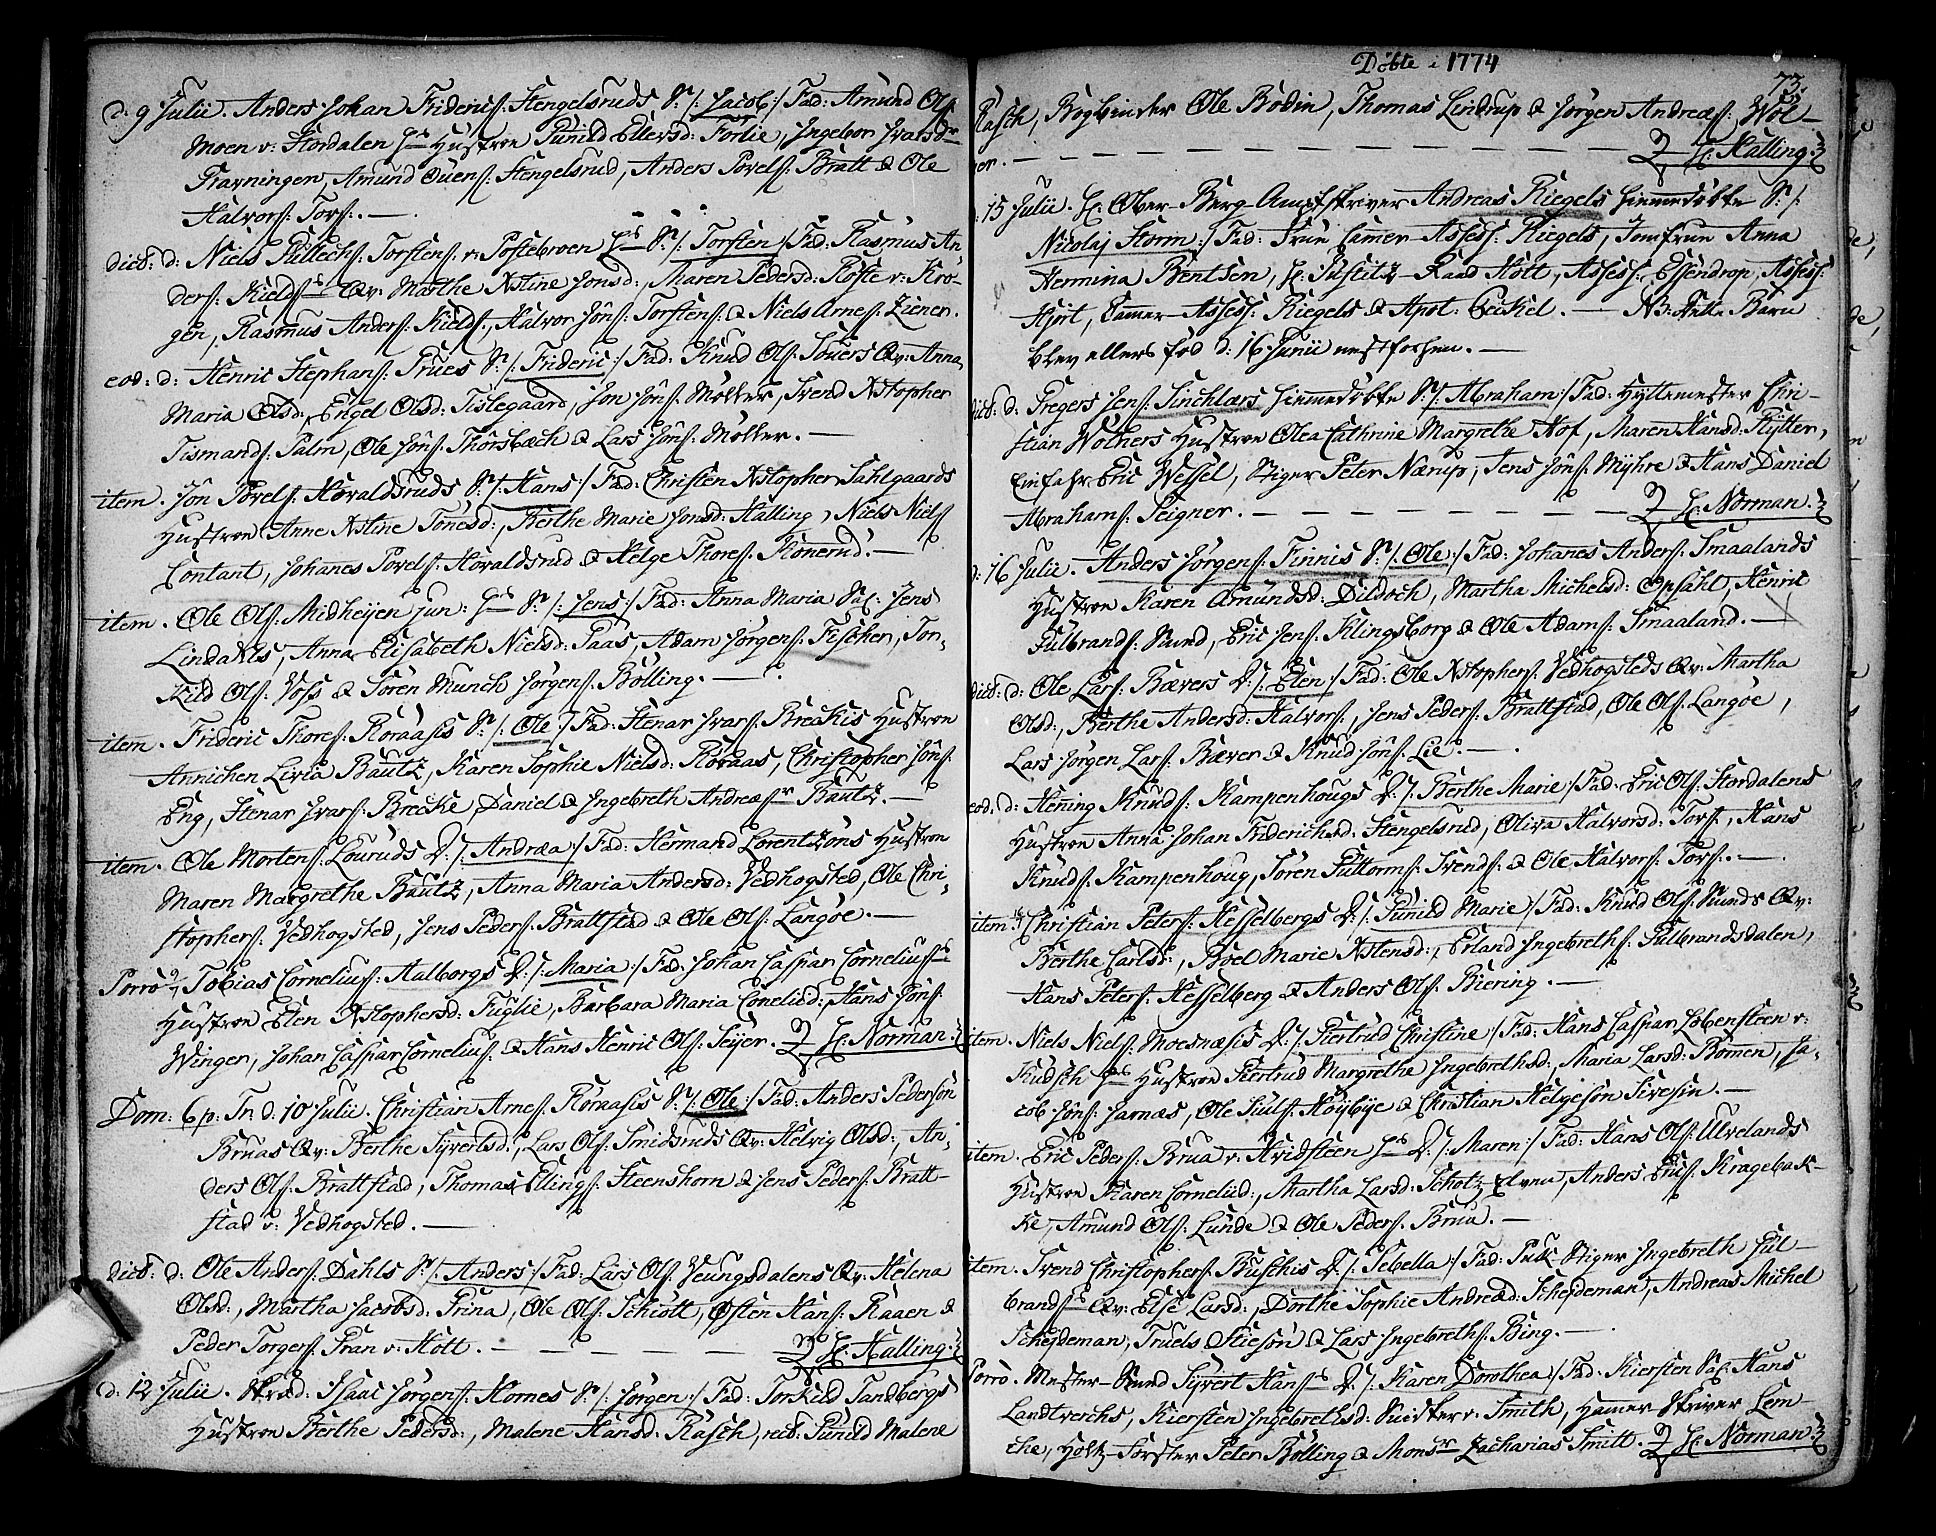 d. 9 Julii. Anders Johan Fridericſ: Stengelsruds S: /: Jacob :/ Fad: Amund Olſ:
Moen v: Stordalen Hs Hustroe Gunild Ellevsd: Forlie, Ingebor Ivarsdr
Pravningen, Amund Ouenſ: Stengelsrud, Anders Povelſ: Bratt & Ole
Halvorſ: Torſ:. —
died: d: Niels Gullichſ: Torstenſ: v: Postebroen Hs S: /: Torsten :/ Fad: Rasmus An-
derſ: Kieldſs Qv: Marthe Xstine Jonsd:, Maren Pedersd: Poste v: Kro-
gen, Rasmus Anderſ: Kieldſ:, Halvor Jönſ: Torstenſ: & Niels Arneſ: Ziener.
eod: d: Henric Stephanſ: Prües S: /: Frideric :/ Fad: Knud Olſ: Sauers Qv: Anna
Maria Olsd:, Engel Olsd: Tislegaard, Jon Jönſ: Möller, Svend Xstopher
Tismandſ: Palm, Ole Jönſ: Thorsbæch & Lars Jönſ: Möller. —
item. Jön Povelſ: Hovaldsruds S: /: Hans :/ Fad: Christen Xstopher Sahlgaards
Hustroe Anne Xstine Tönesd:, Berthe Marie Jonsd: Halling, Niels Nielſ:
Contant, Johanes Povelſ: Hovaldsrud & Helge Thoreſ: Konerud. —
item. Ole Olſ: Midheijen jun: Hs S: /: Jens :/ Fad: Anna Maria Sal: Jens
Lindahls, Anna Elisabeth Nielsd: Paas, Adam Jörgenſ: Fischer, Tor-
kild Olſ: Voss & Sören Munch Jörgenſ: Bölling. —
item. Frideric Thoreſ: Röraasis S: /: Ole :/ Fad: Stenar Ivarſ: Breckis Hustroe
Annichen Livia Bautz, Karen Sophie Nielsd: Röraas, Christopher Jönſ:
Eng, Stenar Ivarſ: Brecke, Daniel & Ingebreth Andreæſr Bautz. —
item. Ole Mortenſ: Louruds D: /: Andræa :/ Fad: Hermand Lorentzöns Hustroe
Maren Margrethe Bautz, Anna Maria Andersd: Vedhogsted, Ole Chri-
stopherſ: Vedhogsted, Jens Pederſ: Brattstad & Ole Olſ: Langöe. —
Porrò Tobias Corneliusſ: Aalborgs D: /: Maria :/ Fad: Johan Caspar Corneliusſs
Hustroe Elen Xstophersd: Fuglie, Barbara Maria Cornelisd:, Hans Jönſ:
Winger, Johan Caspar Corneliusſ: & Hans Henric Olſ: Seijer. H: Norman.
Dom: 6 p: Tr: d: 10 Julii. Christian Arneſ: Röraasis S: /: Ole :/ Fad: Anders Pedersön
Bruas Qv: Berthe Syvertsd:, Lars Olſ: Smidsruds Qv: Helvig Olsd:, An-
ders Olſ: Brattstad, Thomas Ellingſ: Steenshorn & Jens Pederſ: Bratt-
stad v: Vedhogsted. —
died: d: Ole Anderſ: Dahls S: /: Anders :/ Fad: Lars Olſ: Veungsdalens Qv: Helena
Olsd:, Martha Jacobsd: Prina, Ole Olſ: Schiött, Östen Hanſ: Raaen &
Peder Torgerſ: Pran v: Hött. — H: Halling.
d: 12 Julii. Skræd: Isaac Jörgenſ: Hornes S: /: Jörgen :/ Fad: Torkild Tandbergs
Hustroe Berthe Pedersd:, Malene Hansd: Rasch, Gunild Malene
Döbte i 1774
73.
Rasch, Bogbinder Ole Bodin, Thomas Lindrup & Jörgen Andreæſ: Wol-
ner. — H: Halling.
d: 15 Julii. H: Ober Berg-Amptskriver Andreas Riegels hiemmedöbte S: /:
Nicolaj Storm :/ Fad: Frue Cammer-Assess: Riegels, Jomfrue Anna
Hermina Bentsen, H: Justitz-Raad Hött, Assess: Essendrop, Assess:
Hjort, Cammer-Assess: Riegels & Apot: Heikel. — NB: dette Barn
blev ellers föd d: 16 Junii nestforhen. —
died: d: Gregers Jenſ: Sinchlærs hiemmedöbte S: /: Abraham :/ Fad: Hyttemester Chri-
stian Wolners Hustroe Olea Cathrine Margrethe Hof, Maren Hansd: Rytter,
Einfahr Eric Wessel, Stiger Peter Nærup, Jens Jönſ: Myhre & Hans Daniel
Abrahamſ: Seigner. — H: Norman.
d: 16 Julii. Anders Jörgenſ: Finnis S: /: Ole :/ Fad: Johanes Anderſ: Smaalands
Hustroe Karen Amundsd: Dildoch, Martha Michelsd: Opsahl, Henric
Gulbrandſ: Sund, Eric Jenſ: Klingsborg & Ole Adamſ: Smaaland. —
died: d: Ole Larſ: Bævers D: /: Elen :/ Fad: Ole Xstopherſ: Vedhogsteds Qv: Martha
Olsd:, Berthe Andersd: Halvorſ:, Jens Pederſ: Brattstad, Ole Olſ: Langöe,
Lars Jörgen Larſ: Bæver & Knud Jönſ: Lie. —
eod: d: Hening Knudſ: Kampenhougs D: /: Berthe Marie :/ Fad: Eric Olſ: Stordalens
Hustroe Anna Johan Friderichsd: Stengelsrud, Oliva Halvorsd: Torſ:, Hans
Knudſ: Kampenhoug, Sören Guttormſ: Svendſ: & Ole Halvorſ: Torſ:. —
item: Christian Peterſ: Hesselbergs D: /: Gunild Marie :/ Fad: Knud Olſ: Sunds Qv:
Berthe Carlsd:, Boel Marie Xstensd:, Erland Ingebrethſ: Gulbrandsdalen,
Hans Peterſ: Hesselberg & Anders Olſ: Biering. —
item. Niels Nielſ: Moesnæsis D: /: Giertrud Christine :/ Fad: Hans Caspar Lobensteen v:
Kudsch Hs Hustroe Giertrud Margrethe Ingebrethsd:, Maria Larsd: Bömen, Ja-
cob Jönſ: Jarnæs, Ole Juulſ: Höijbye & Christian Helgesön Sivesin. —
item. Eric Pederſ: Brua v: Hvidsteen Hs D: /: Maren :/ Fad: Hans Olſ: Ulvelands
Hustroe Karen Cornelisd:, Martha Larsd: Scholtz-Elven, Anders Ericſ: Krageback-
ke, Amund Olſ: Lunde & Ole Pederſ: Brua. —
item. Svend Christopherſ: Buschis D: /: Sebella :/ Fad: Stiger Ingebreth Gul-
brandſs Qv: Else Larsd:, Dorthe Sophie Andreæd: Schejdeman, Andreas Michel
Schejdeman, Truels Stiesön & Lars Ingebrethſ: Bing. —
Porrò. Mester-Svend Syvert Hanſs D: /: Karen Dorothea :/ Fad: Kiersten Sal: Hans
Landtverchs, Kiersten Ingebrethsd: Smith, Hamer Skriver Lem-
che, Holtz-Forster Peter Bölling & Monsr Zacharias Smitt. H: Norman.